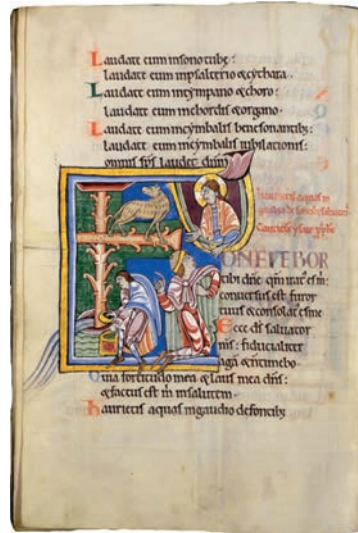 Laudate eum insono tube:
laudate eum inpsalterio &cythara.
Laudate eum intympano &choro:
laudate eum inchordis &organo.
Laudate eum incymbalis benesonantib;:
laudate eum incymbalis iubilationis:
omnis sps laudet dnm
haurietis aquas in
Canticū ysaie pphe
ONFITEBOR
tibi dne qm irat' es m:
conuersus est furor
tuus &consolat' es me
Ecce ds saluator
ms: fiducialiter
agā &ntimebo
Quia fortitudo mea &laus mea dns:
&factus est m insalutem.
haurietis aquas ingaudio defontib;